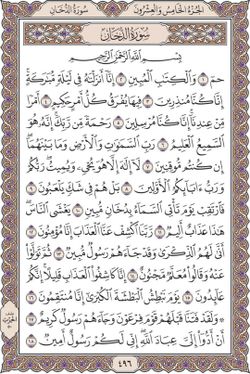 الجزء الخامس والعشرون سورة الدخان
سورة الدخان
بسم الله الرحمن الرحيم
حم ١ والكتاب المبين ٢ إنا أنزلناه في ليلة مباركة
إنا كنا منذرين ٣ فيها يفرق كل أمر حكيم ٤ أمرا
من عندنا إنا كنا مرسلين ٥ رحمة من ربك إنه هو
السميع العليم ٦ رب السماوات والأرض وما بينهما
إن كنتم موقنين ٧ لا إله إلا هو يحيي ويميت ربكم
ورب آبائكم الأولين ٨ بل هم في شك يلعبون ٩
فارتقب يوم تأتي السماء بدخان مبين ١٠ يغشى الناس
هذا عذاب أليم ١١ ربنا اكشف عنا العذاب إنا مؤمنون ١٢
أنى لهم الذكرى وقد جاءهم رسول مبين ١٣ ثم تولوا
عنه وقالوا معلم مجنون ١٤ إنا كاشفو العذاب قليلا إنكم
عائدون ١٥ يوم نبطش البطشة الكبرى إنا منتقمون ١٦
ولقد فتنا قبلهم قوم فرعون وجاءهم رسول كريم ١٧
أن أدوا إلي عباد الله إني لكم رسول أمين ١٨
٤٩٦